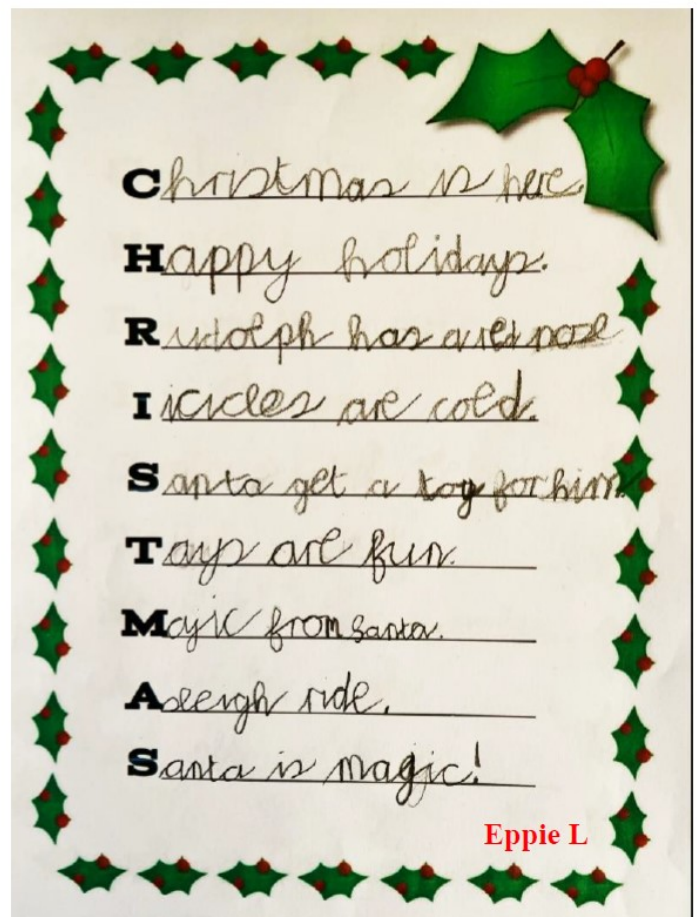 Christmas is here.
Happy holidays.
Rudolph has a red nose
Iicicles are cold.
Santa get a toy for him
Tays are fun.
Majic from santa.
A sleigh ride.
Santa is magic!
Eppie L